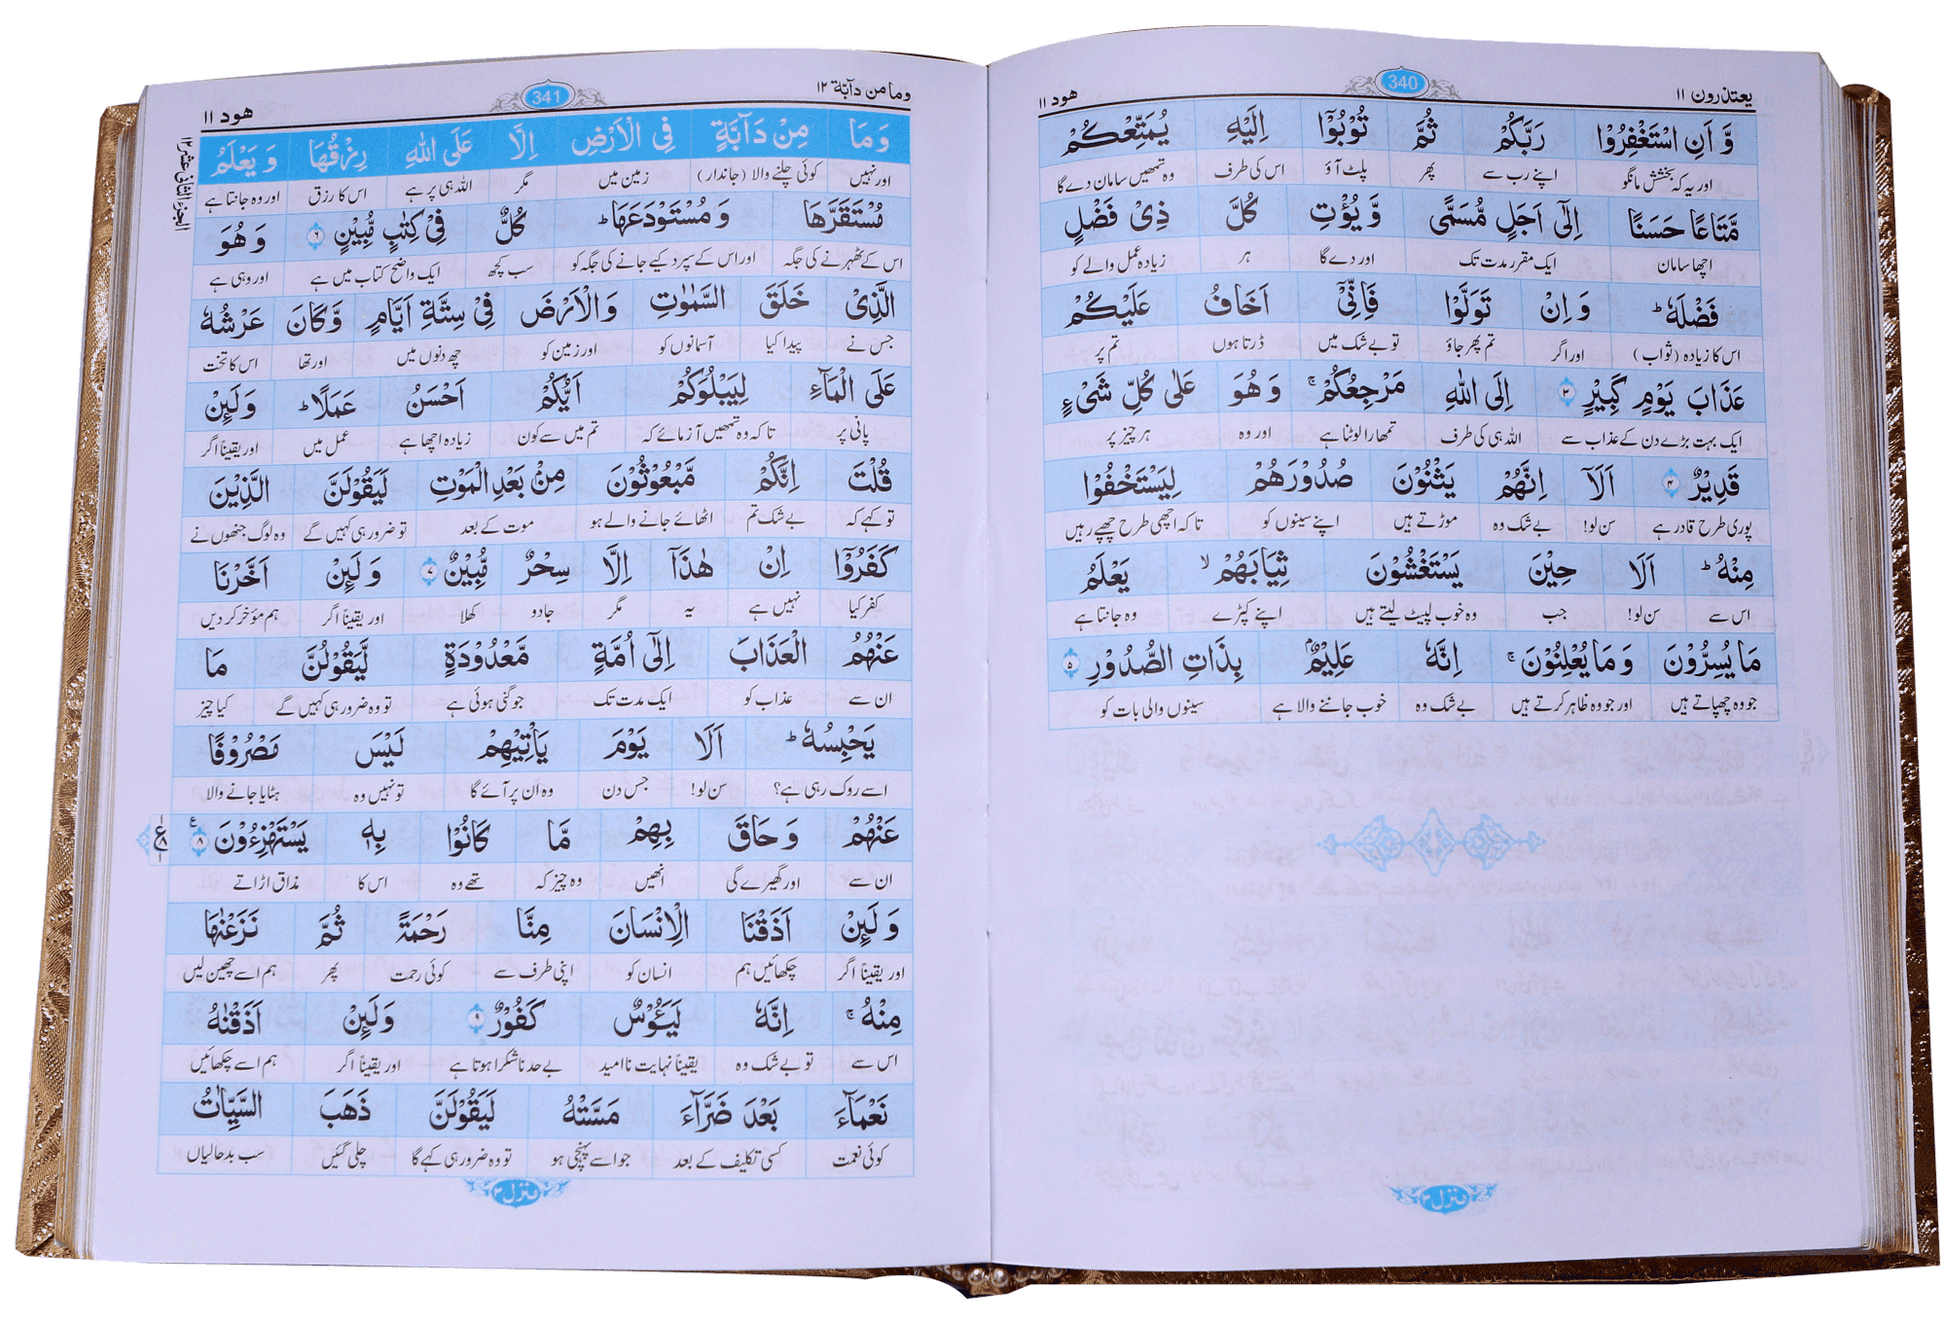 یعتذرون ۱۱ 340 هود ۱۱
وَّ اَنِ اسْتَغْفِرُوْا رَبَّكُمْ ثُمَّ تُوْبُوْۤا اِلَیْهِ یُمَتِّعْكُمْ
اور یہ کہ بخشش مانگو اپنے رب سے پھر پلٹ آؤ اس کی طرف وہ تمھیں سامان دے گا
مَّتَاعًا حَسَنًا اِلٰۤی اَجَلٍ مُّسَمًّی وَّ یُؤْتِ كُلَّ ذِیْ فَضْلٍ
اچھا سامان ایک مقرر مدت تک اور دے گا ہر زیادہ عمل والے کو
فَضْلَهٗ ؕ وَ اِنْ تَوَلَّوْا فَاِنِّیْۤ اَخَافُ عَلَیْكُمْ
اس کا زیادہ (ثواب) اور اگر تم پھر جاؤ تو بے شک میں ڈرتا ہوں تم پر
عَذَابَ یَوْمٍ كَبِیْرٍ ۳ اِلَی اللّٰهِ مَرْجِعُكُمْ ۚ وَ هُوَ عَلٰی كُلِّ شَیْءٍ
ایک بہت بڑے دن کے عذاب سے اللہ ہی کی طرف تمھارا لوٹنا ہے اور وہ ہر چیز پر
قَدِیْرٌ ۴ اَلَاۤ اِنَّهُمْ یَثْنُوْنَ صُدُوْرَهُمْ لِیَسْتَخْفُوْا
پوری طرح قادر ہے سن لو! بے شک وہ موڑتے ہیں اپنے سینوں کو تاکہ اچھی طرح چھپے رہیں
مِنْهُ ؕ اَلَا حِیْنَ یَسْتَغْشُوْنَ ثِیَابَهُمْ ۙ یَعْلَمُ
اس سے سن لو! جب وہ خوب لپیٹ لیتے ہیں اپنے کپڑے وہ جانتا ہے
مَا یُسِرُّوْنَ وَ مَا یُعْلِنُوْنَ ۚ اِنَّهٗ عَلِیْمٌۢ بِذَاتِ الصُّدُوْرِ ۵
جو وہ چھپاتے ہیں اور جو وہ ظاہر کرتے ہیں بے شک وہ خوب جاننے والا ہے سینوں والی بات کو
منزل ۳
وما من دآبّة ۱۲ 341 هود ۱۱
وَ مَا مِنْ دَآبَّةٍ فِی الْاَرْضِ اِلَّا عَلَی اللّٰهِ رِزْقُهَا وَ یَعْلَمُ
اور نہیں کوئی چلنے والا (جاندار) زمین میں مگر اللہ ہی پر ہے اس کا رزق اور وہ جانتا ہے
مُسْتَقَرَّهَا وَ مُسْتَوْدَعَهَا ؕ كُلٌّ فِیْ كِتٰبٍ مُّبِیْنٍ ۶ وَ هُوَ
اس کے ٹھہرنے کی جگہ اور اس کے سپرد کیے جانے کی جگہ کو سب کچھ ایک واضح کتاب میں ہے اور وہی ہے
الَّذِیْ خَلَقَ السَّمٰوٰتِ وَ الْاَرْضَ فِیْ سِتَّةِ اَیَّامٍ وَّ كَانَ عَرْشُهٗ
جس نے پیدا کیا آسمانوں کو اور زمین کو چھ دنوں میں اور تھا اس کا تخت
عَلَی الْمَآءِ لِیَبْلُوَكُمْ اَیُّكُمْ اَحْسَنُ عَمَلًا ؕ وَ لَىِٕنْ
پانی پر تاکہ وہ تمھیں آزمائے کہ تم میں سے کون زیادہ اچھا ہے عمل میں اور یقیناً اگر
قُلْتَ اِنَّكُمْ مَّبْعُوْثُوْنَ مِنْۢ بَعْدِ الْمَوْتِ لَیَقُوْلَنَّ الَّذِیْنَ
تو کہے کہ بے شک تم اٹھائے جانے والے ہو موت کے بعد تو ضرور ہی کہیں گے وہ لوگ جنھوں نے
كَفَرُوْۤا اِنْ هٰذَاۤ اِلَّا سِحْرٌ مُّبِیْنٌ ۷ وَ لَىِٕنْ اَخَّرْنَا
کفر کیا نہیں ہے یہ مگر جادو کھلا اور یقیناً اگر ہم مؤخر کر دیں
عَنْهُمُ الْعَذَابَ اِلٰۤی اُمَّةٍ مَّعْدُوْدَةٍ لَّیَقُوْلُنَّ مَا
ان سے عذاب کو ایک مدت تک جو گنی ہوئی ہے تو وہ ضرور ہی کہیں گے کیا چیز
یَحْبِسُهٗ ؕ اَلَا یَوْمَ یَاْتِیْهِمْ لَیْسَ مَصْرُوْفًا
اسے روک رہی ہے؟ سن لو! جس دن وہ ان پر آئے گا تو نہیں وہ ہٹایا جانے والا
عَنْهُمْ وَ حَاقَ بِهِمْ مَّا كَانُوْا بِهٖ یَسْتَهْزِءُوْنَ ۸
ان سے اور گھیرے گی انھیں وہ چیز کہ تھے وہ اس کا مذاق اڑاتے
وَ لَىِٕنْ اَذَقْنَا الْاِنْسَانَ مِنَّا رَحْمَةً ثُمَّ نَزَعْنٰهَا
اور یقیناً اگر چکھائیں ہم انسان کو اپنی طرف سے کوئی رحمت پھر ہم اسے چھین لیں
مِنْهُ ۚ اِنَّهٗ لَیَـُٔوْسٌ كَفُوْرٌ ۹ وَ لَىِٕنْ اَذَقْنٰهُ
اس سے تو بے شک وہ یقیناً نہایت ناامید بے حد ناشکرا ہوتا ہے اور یقیناً اگر ہم اسے چکھائیں
نَعْمَآءَ بَعْدَ ضَرَّآءَ مَسَّتْهُ لَیَقُوْلَنَّ ذَهَبَ السَّیِّاٰتُ
کوئی نعمت کسی تکلیف کے بعد جو اسے پہنچی ہو تو وہ ضرور ہی کہے گا چلی گئیں سب بدحالیاں
منزل ۳
الجزء الثانی عشر ۱۲